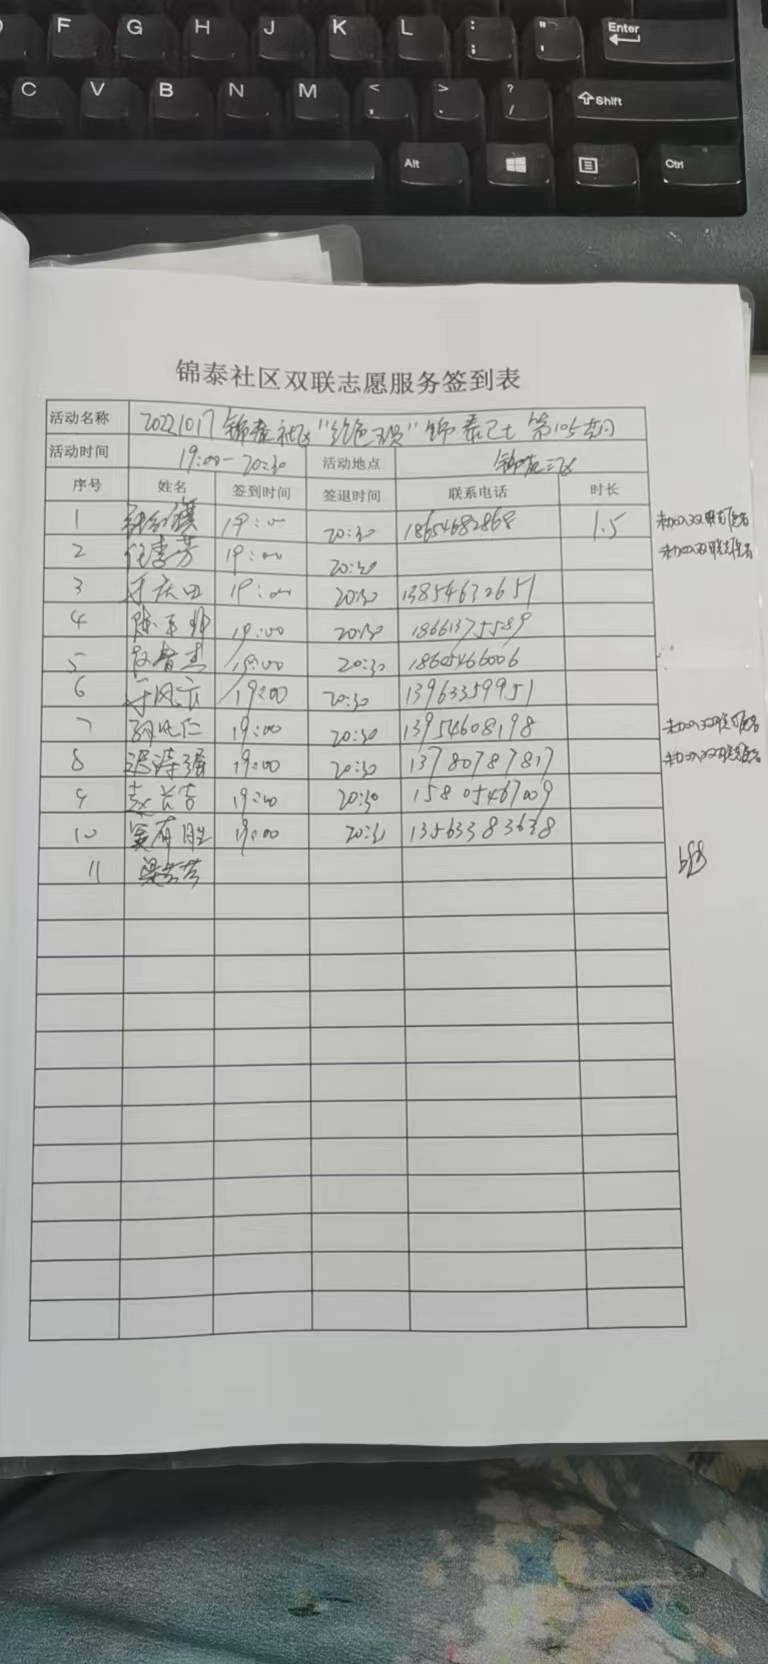 F G H J K L : ; " ' Enter
C V B N M < , > . ? / Shift
Alt Ctrl
锦泰社区双联志愿服务签到表
活动名称 20221017 锦泰社区"红色 " 锦泰 第105期
活动时间 19:00-20:30 活动地点 锦泰三区
序号 姓名 签到时间 签退时间 联系电话 时长
1 19:00 20:30 18654682868 1.5 未加入双联志愿者
2 任春芳 19:00 20:30 未加入双联志愿者
3 于庆田 19:00 20:30 13854630651
4 陈 19:00 20:30 18661375589
5 19:00 20:30 18605466006
6 于风云 19:00 20:30 13963359951
7 19:00 20:30 13954608198 未加入双联志愿者
8 19:00 20:30 13780787817 未加入双联志愿者
9 赵长吉 19:00 20:30 15805467009
10 窦有胜 19:00 20:30 13563383638
11 梁芳芳